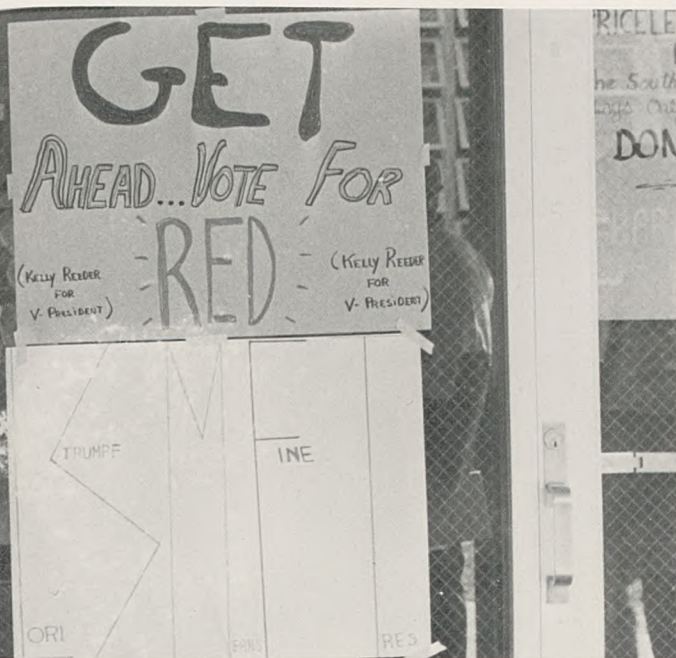 GET
AHEAD... VOTE FOR
RED
(KELLY REEDER
FOR
V- PRESIDENT)
(KELLY REEDER
FOR
V- PRESIDENT)
TRUMPF
INE
ORI
RES
PRICELE
he South
DON